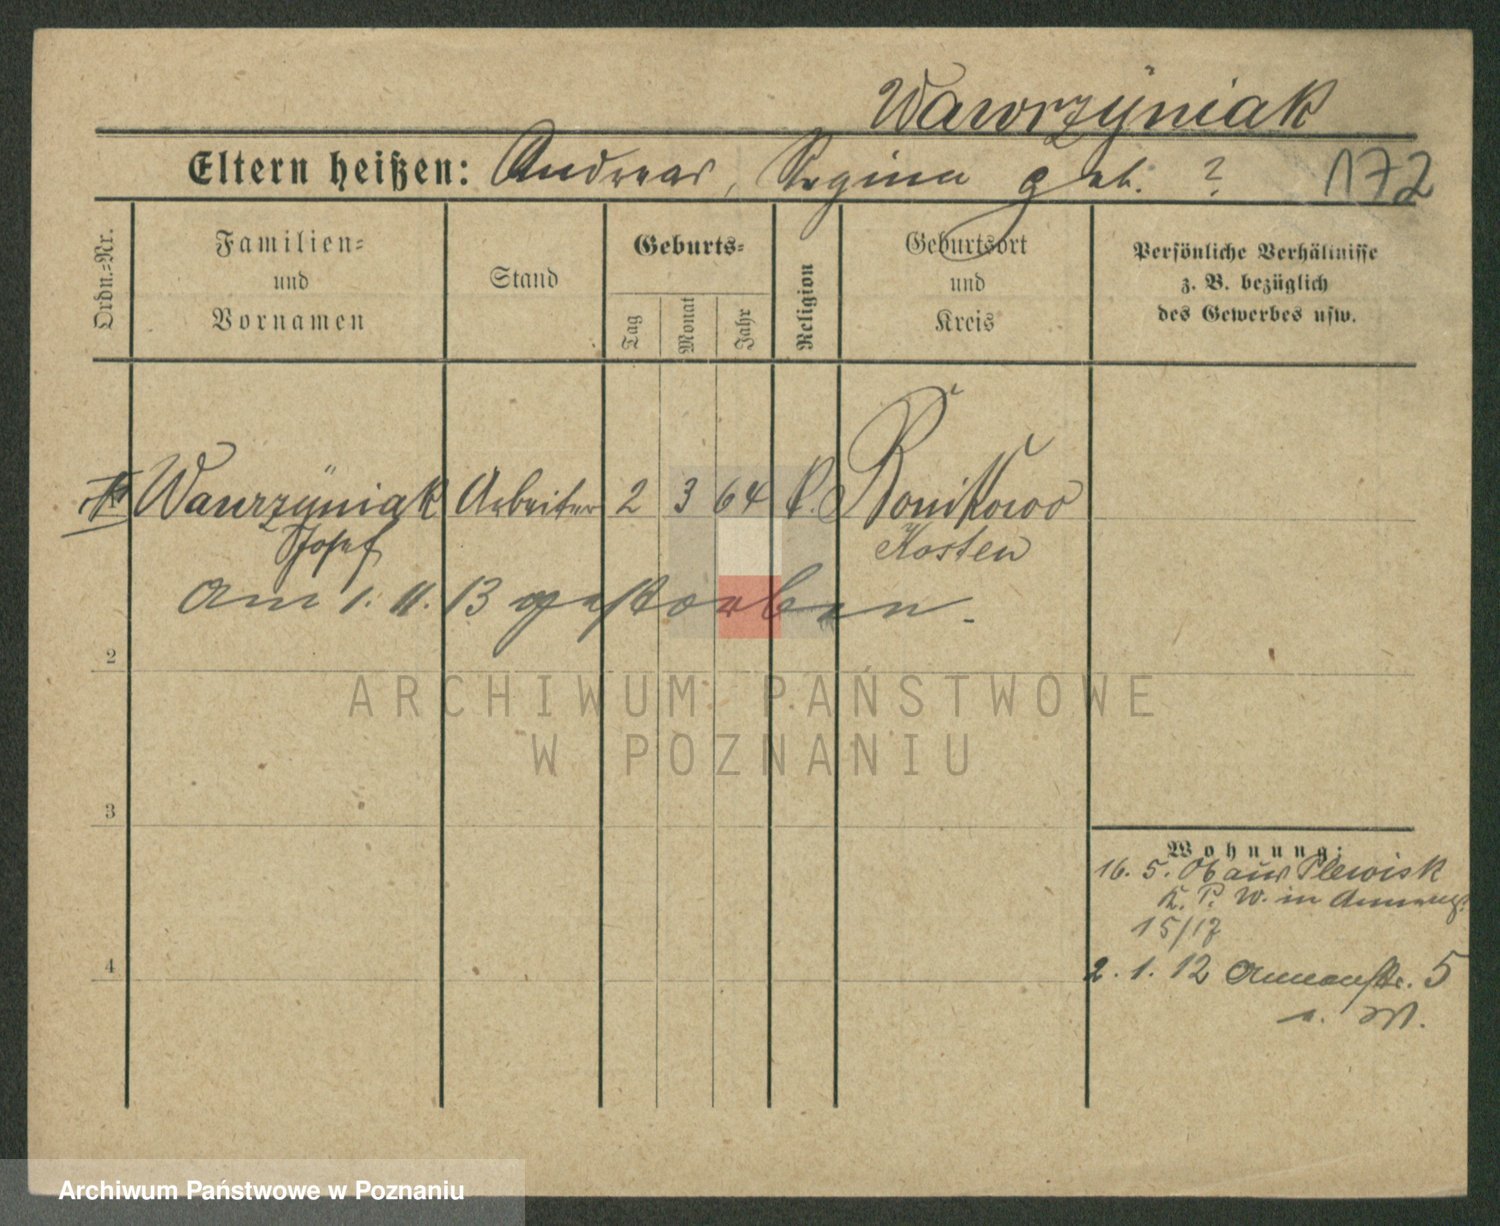 Wawrzÿniak
Eltern heißen: Andreas, Regina geb. ? 172
Ordn.=Nr.
Familien=
und
Vornamen
Stand
Geburts=
Tag
Monat
Jahr
Religion
Geburtsort
und
Kreis
Persönliche Verhältnisse
z. B. bezüglich
des Gewerbes usw.
Wawrzÿniak Arbeiter 2 3 64 k. Bonikowo
Josef Kosten
am 1. 11. 13 gestorben.
2
3
4
Wohnung:
16. 5. 06 aus Plewisk
K. P. W. in
15/17
2. 1. 12 5
ARCHIWUM PAŃSTWOWE
W POZNANIU
Archiwum Państwowe w Poznaniu